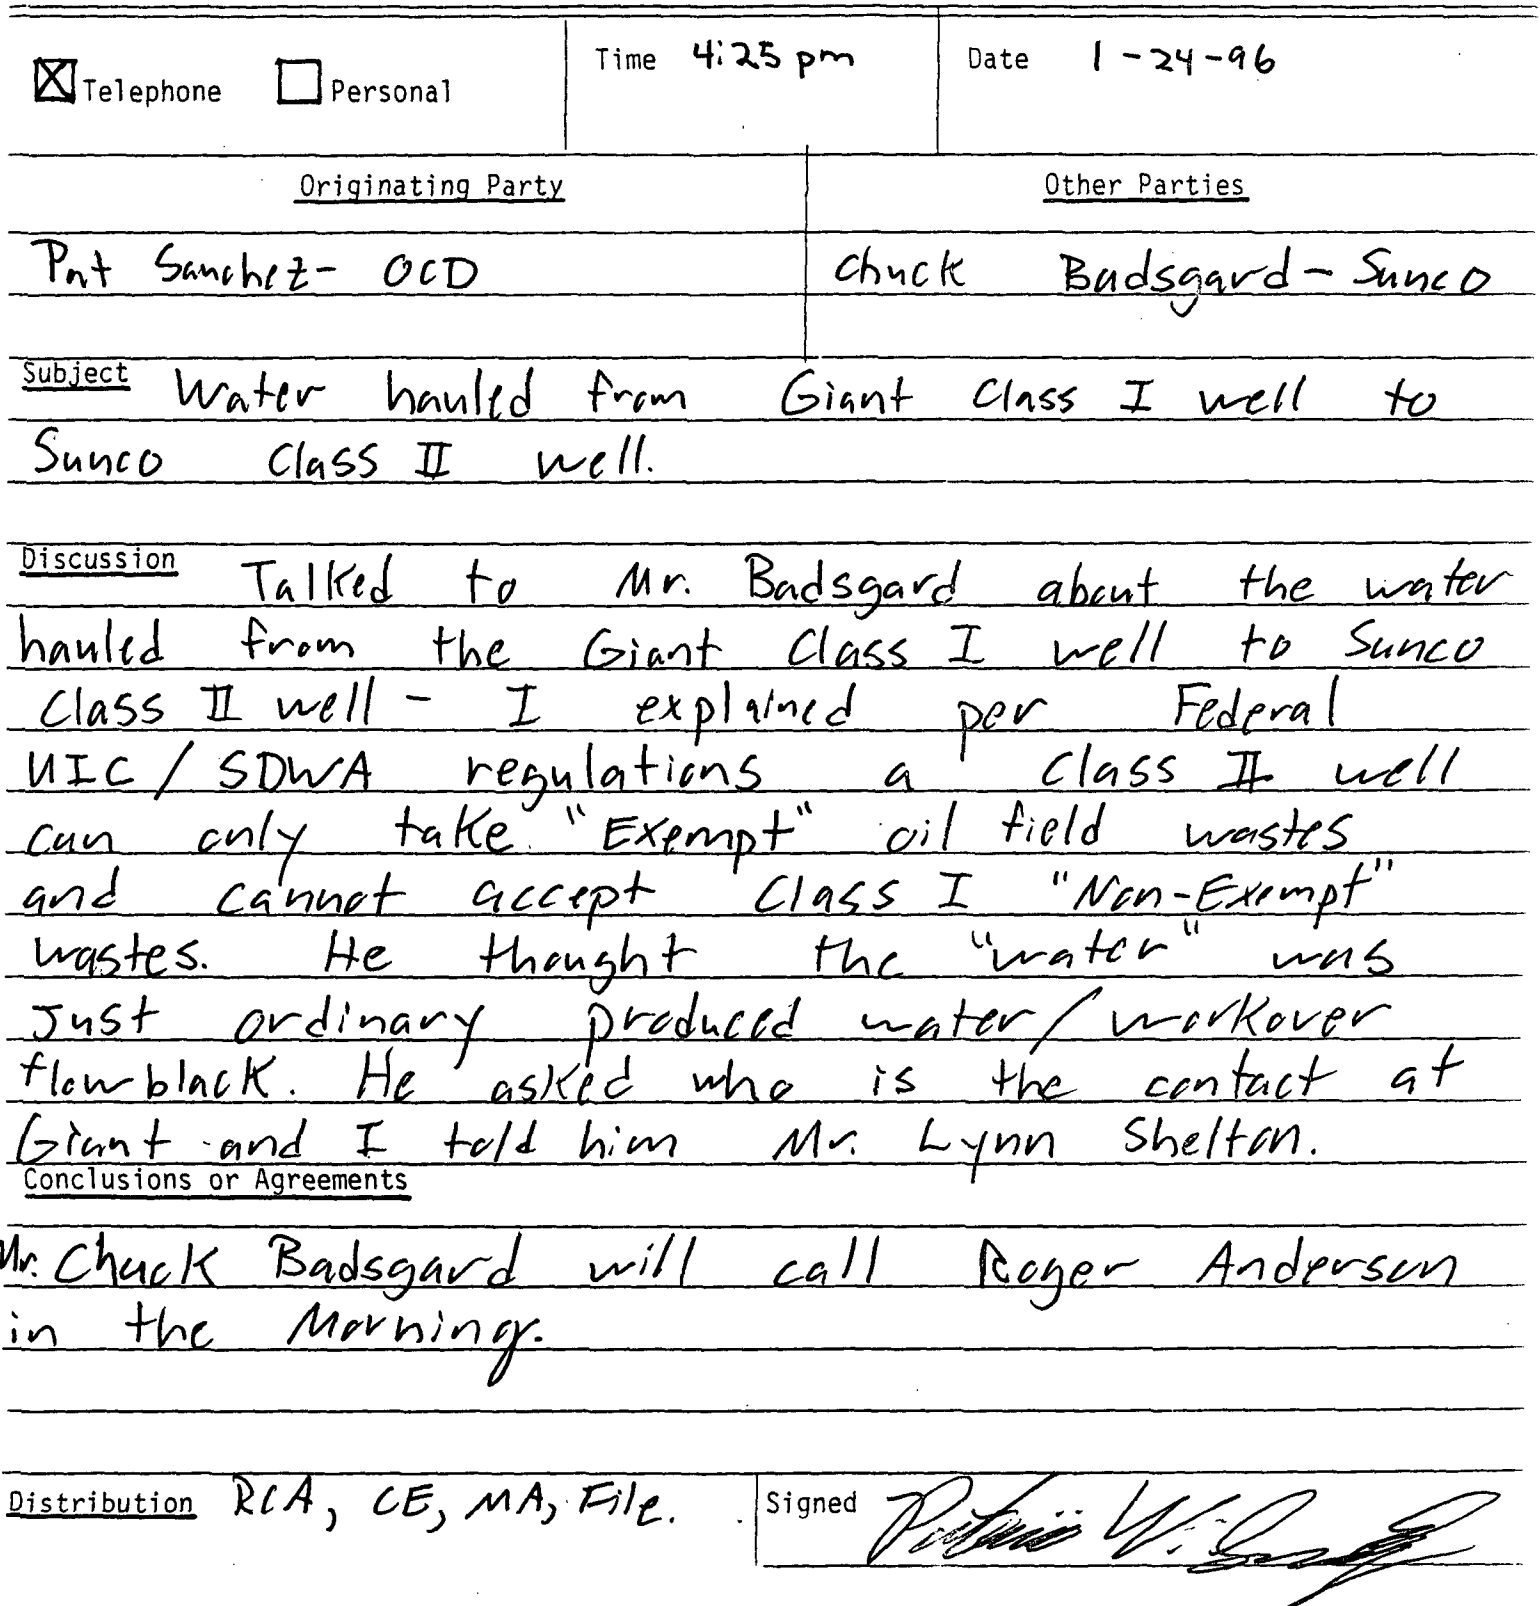 Telephone Personal Time 4:25 pm Date 1-24-96
Originating Party Other Parties
Pat Sanchez- OCD Chuck Badsgard - Sunco
Subject Water hauled from Giant Class I well to
Sunco Class II well.
Discussion Talked to Mr. Badsgard about the water
hauled from the Giant Class I well to Sunco
Class II well - I explained per Federal
UIC/SDWA regulations a Class II well
can only take "Exempt" oil field wastes
and cannot accept Class I "Non-Exempt"
wastes. He thought the "water" was
just ordinary produced water/workover
flowblack. He asked who is the contact at
Giant and I told him Mr. Lynn Shelton.
Conclusions or Agreements
Mr. Chuck Badsgard will call Roger Anderson
in the Morning.
Distribution RCA, CE, MA, File. Signed